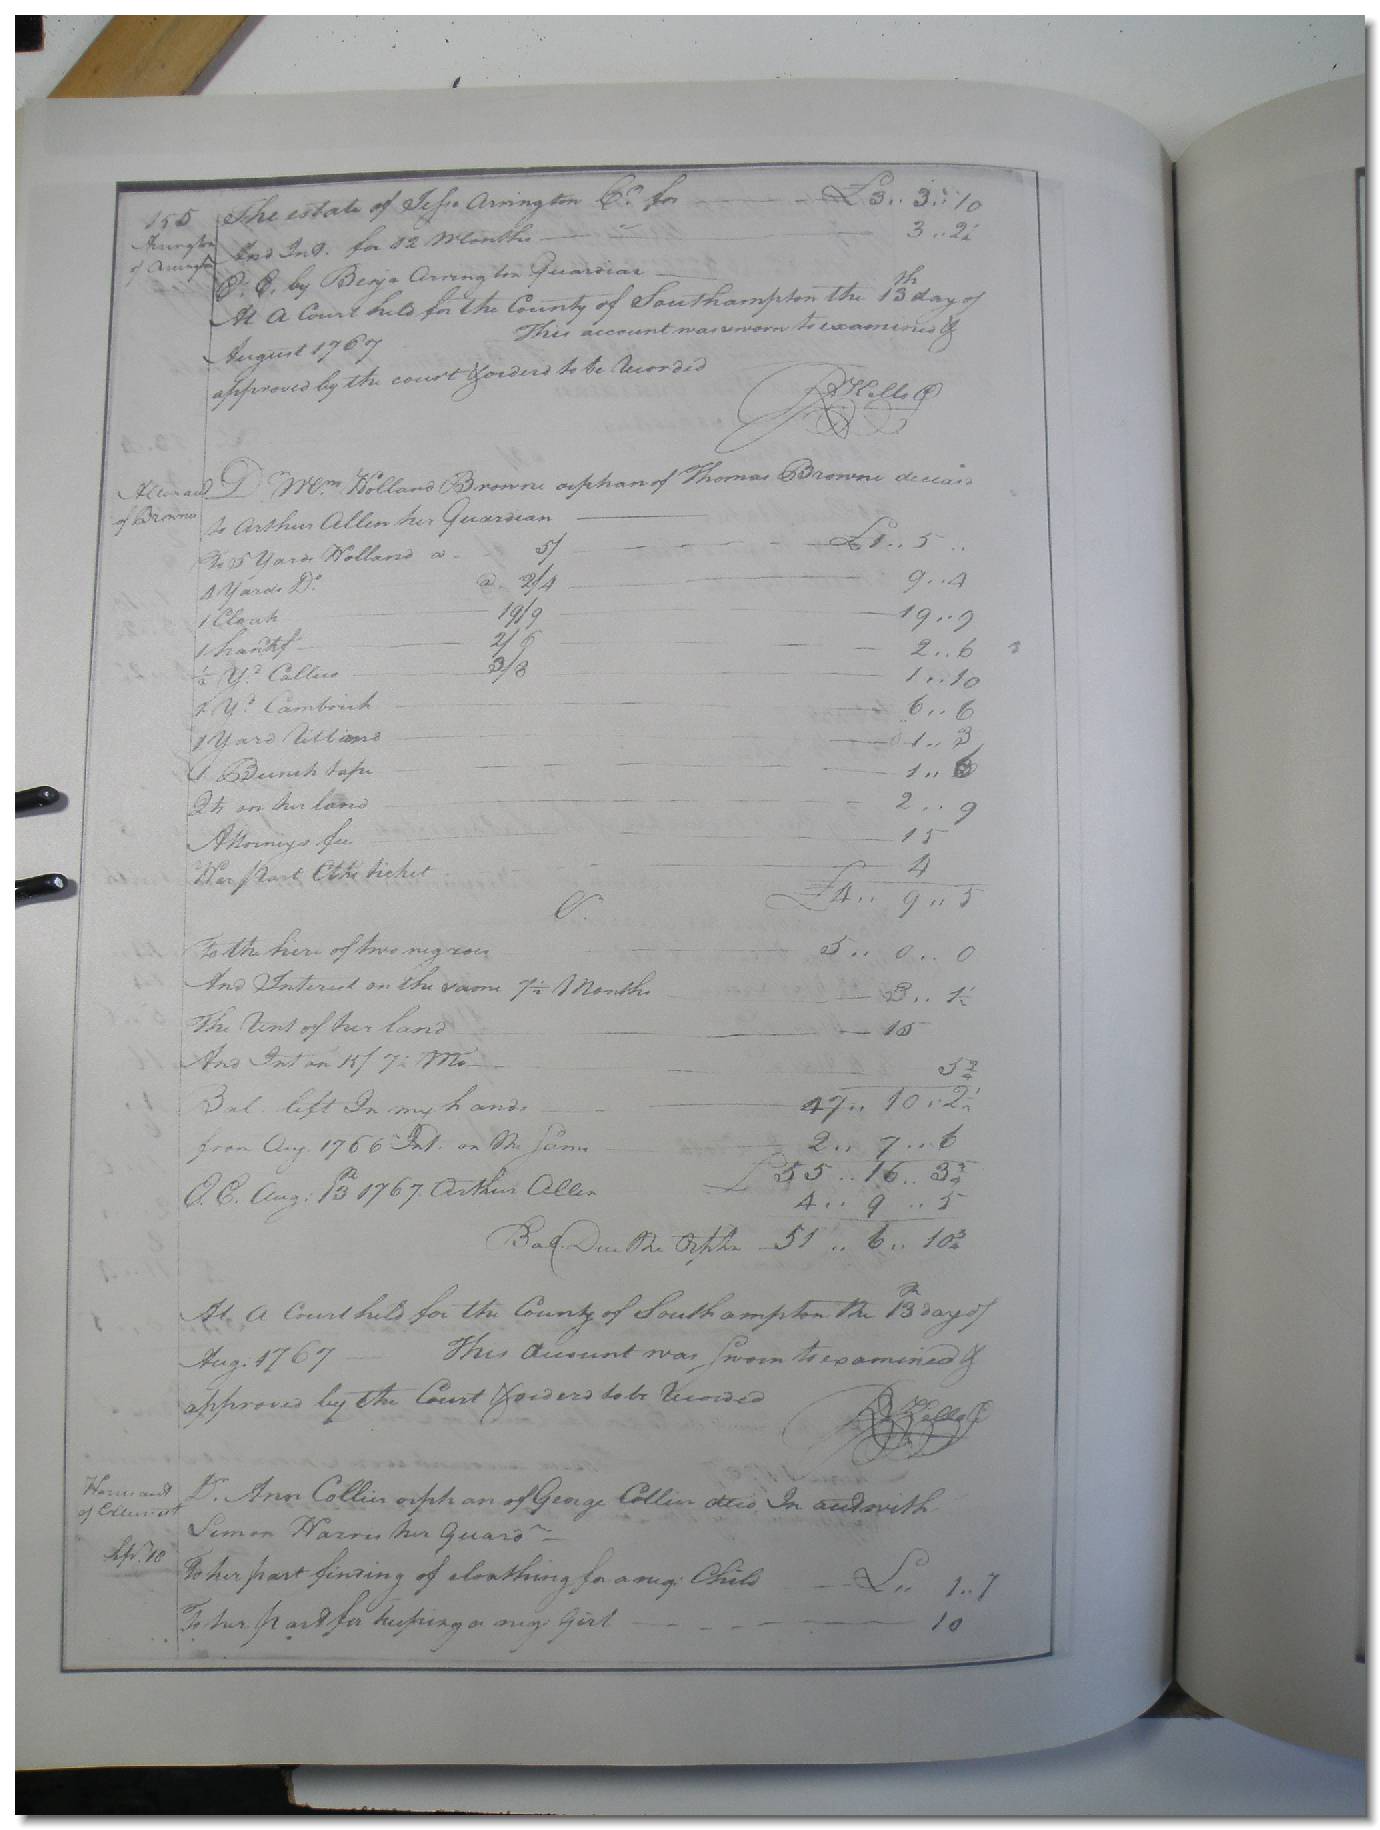 155 The estate of Jesse Arrington Cr. for £3..3..10
Arrington And Int. for 12 Months 3..2½
of Arrington E. E. by Benja Arrington Guardian
At A Court held for the County of Southampton the 13th day of
August 1767 This account was sworn to examined &
approved by the court & orderd to be Recorded
R Kello C
Allen acct D Wm. Holland Browne orphan of Thomas Browne
of Browne to Arthur Allen her Guardian
To 5 Yards Holland a 5/ £1..5..
4 Yards Do. @ 2/4 9..4
1 Cloak 19/9 19..9
1 handkf 2/6 2..6
½ Yd. Callico 3/8 1..10
Yd. Cambrick 6..6
1 Yard 1..3
1 Bunch tape 1..6
Qts on her land 2..9
Attorneys fee 15
Her part ticket 4
£4..9..5
C.
To the hire of two negroes 5..0..0
And Interest on the same 7½ Months 3..1½
The Rent of her land 15
And Int on 15/ 7½ Mo 5¾
Bal. left In my hands 47..10..2½
from Aug. 1766 Int. on the Same 2..7..6
E. E. Aug: 13th 1767 Arthur Allen £55..16..3¾
4..9..5
Bal. Due the Orphn 51..6..10¾
At A Court held for the County of Southampton the 13th day of
Aug: 1767 This Account was Sworn to examined &
approved by the Court & orderd to be Recorded
R Kello C
Harris acct D. Ann Collier orphan of George Collier decd. In acct with
of Collier Simon Harris her Guardn
To her part finding of cloathing for a neg: Child £.. 1..7
To her part for keeping a neg girl 10